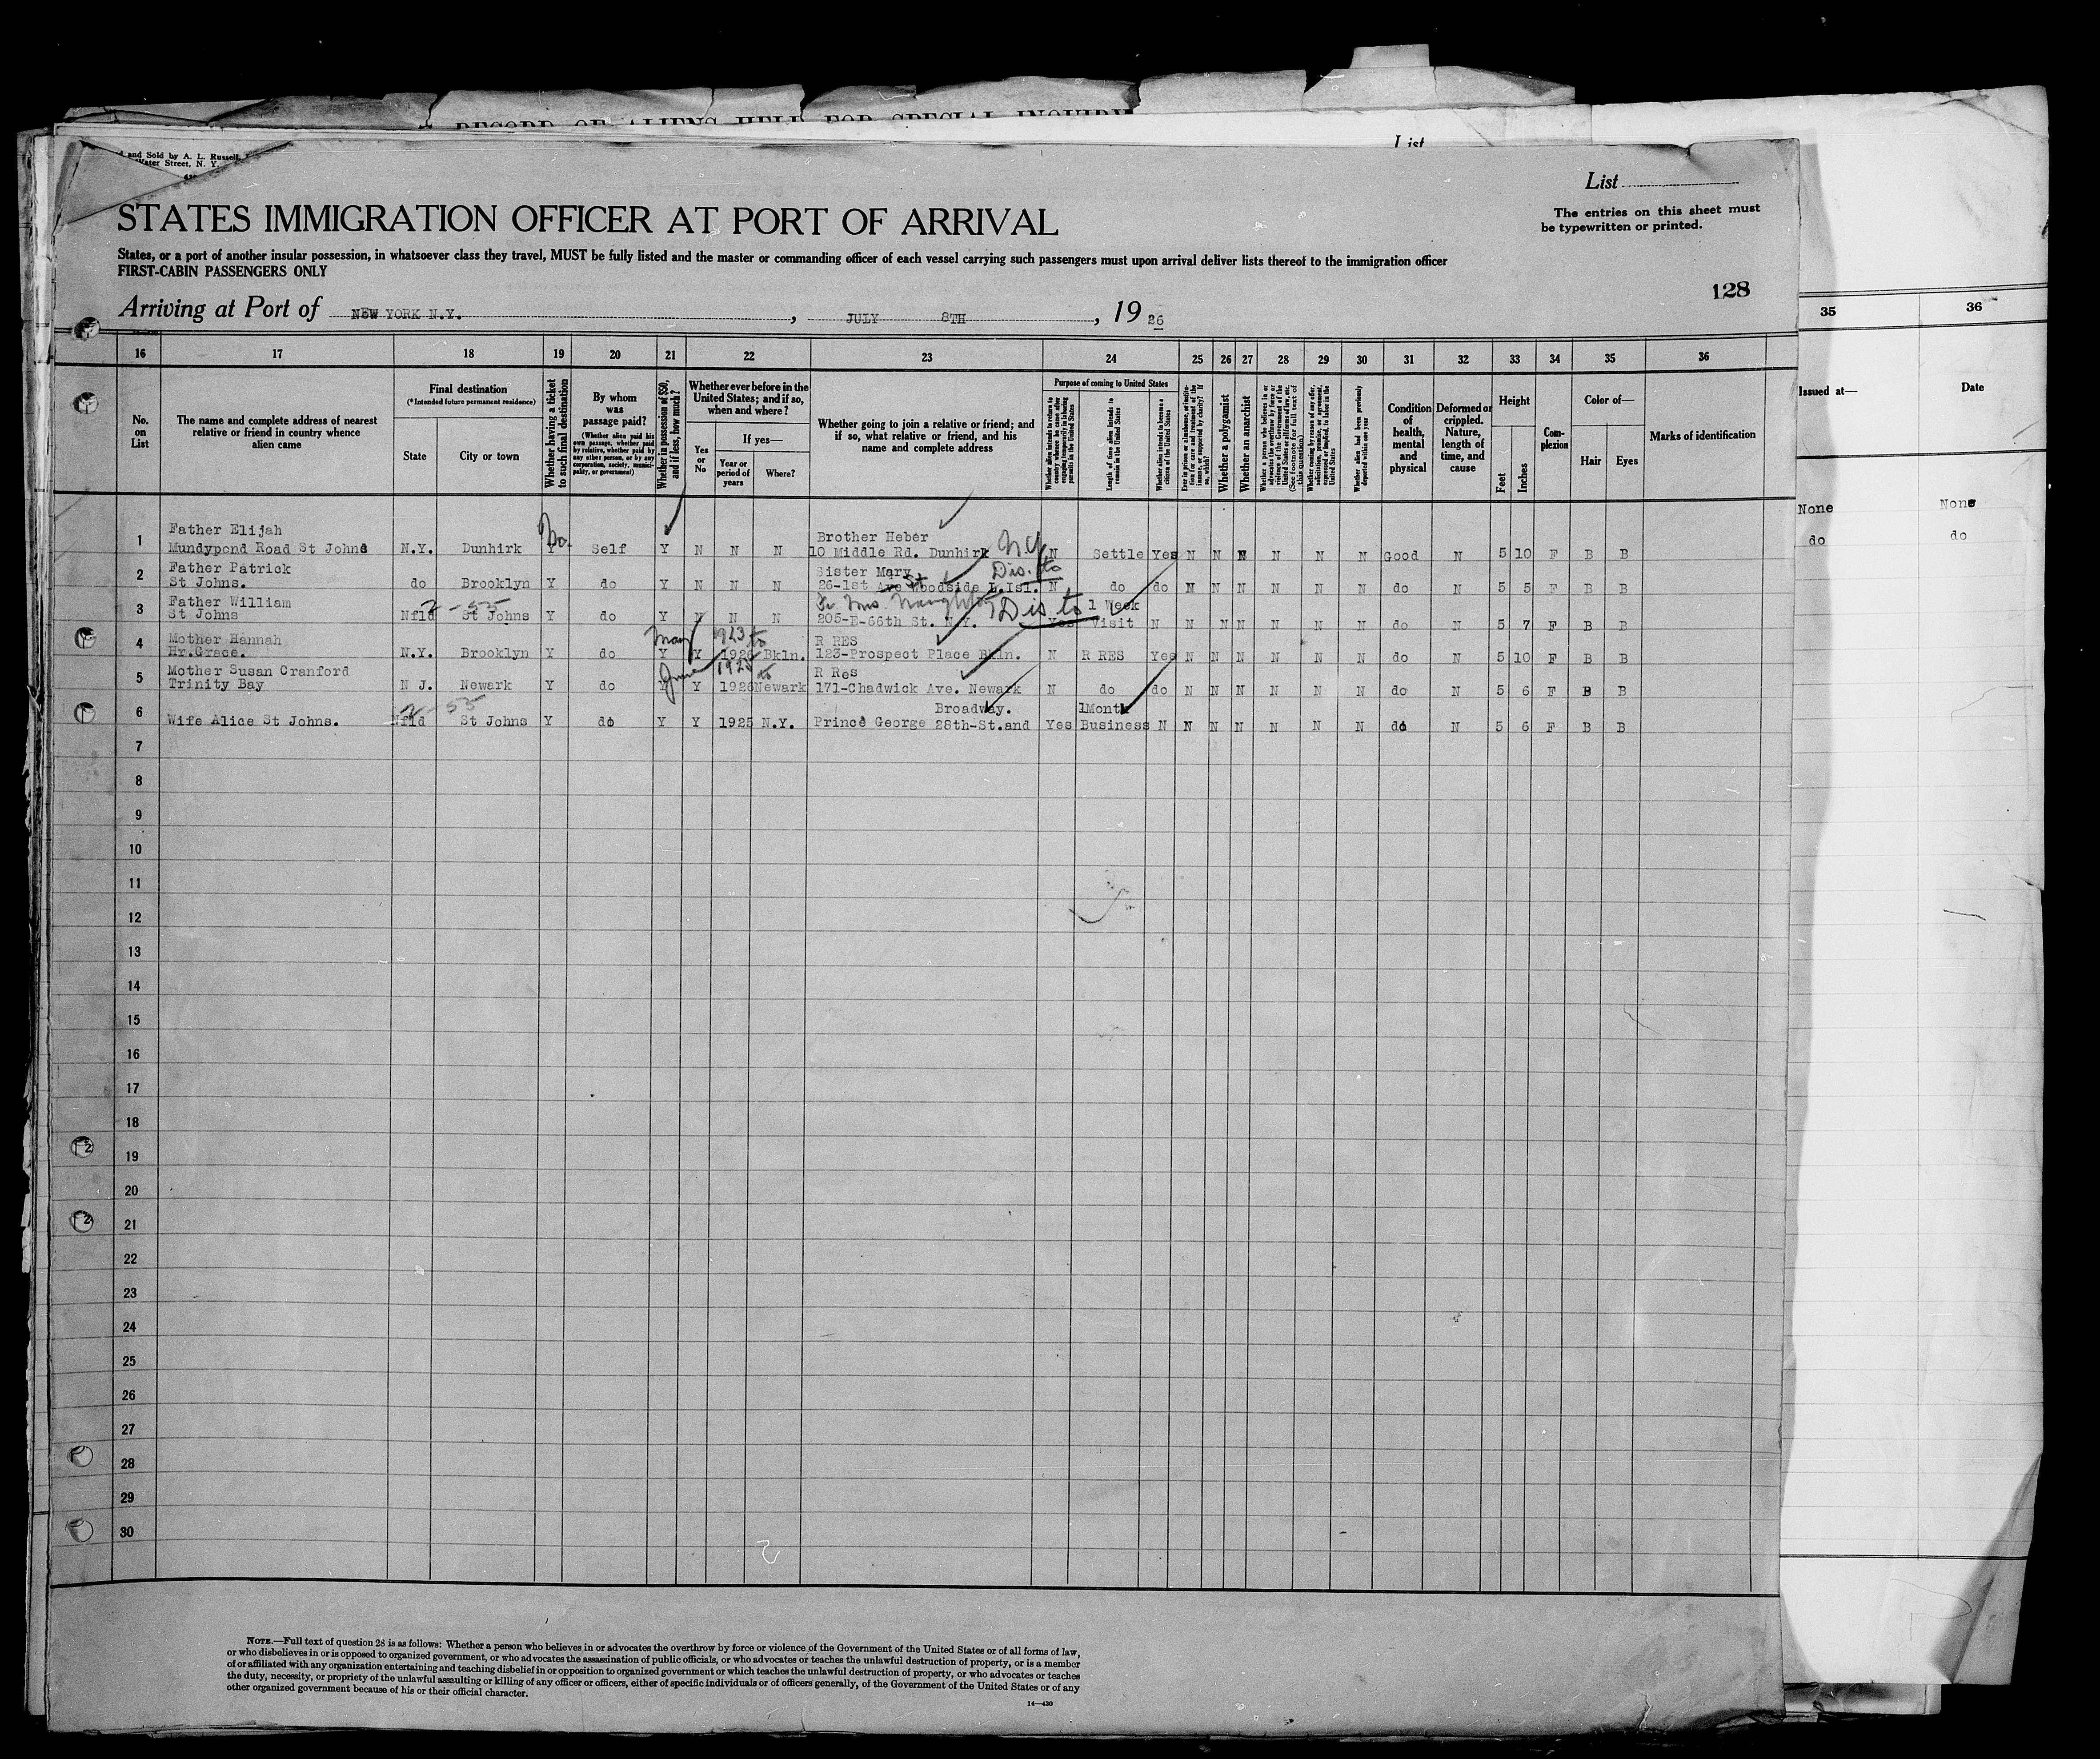 RECORD OF ALIENS HELD FOR SPECIAL INQUIRY
List
and Sold by A. L. Russell,
Water Street, N. Y.
List
STATES IMMIGRATION OFFICER AT PORT OF ARRIVAL
The entries on this sheet must
be typewritten or printed.
States, or a port of another insular possession, in whatsoever class they travel, MUST be fully listed and the master or commanding officer of each vessel carrying such passengers must upon arrival deliver lists thereof to the immigration officer
FIRST-CABIN PASSENGERS ONLY
128
Arriving at Port of NEW YORK N.Y., JULY 8TH, 19 26
16 17 18 19 20 21 22 23 24 25 26 27 28 29 30 31 32 33 34 35 36
No. on List
The name and complete address of nearest relative or friend in country whence alien came
Final destination
(*Intended future permanent residence)
State
City or town
Whether having a ticket to such final destination
By whom was passage paid?
(Whether alien paid his own passage, whether paid by relative, whether paid by any other person, or by any corporation, society, municipality, or government)
Whether in possession of $50, and if less, how much?
Whether ever before in the United States; and if so, when and where?
Yes or No
If yes—
Year or period of years
Where?
Whether going to join a relative or friend; and if so, what relative or friend, and his name and complete address
Purpose of coming to United States
Whether alien intends to return to country whence he came after engaging temporarily in laboring pursuits in the United States
Length of time alien intends to remain in the United States
Whether alien intends to become a citizen of the United States
Ever in prison or almshouse, or institution for care and treatment of the insane, or supported by charity? If so, which?
Whether a polygamist
Whether an anarchist
Whether a person who believes in or advocates the overthrow by force or violence of the Government of the United States or all forms of law, etc. (See footnote for full text of this question)
Whether coming by reason of any offer, solicitation, promise, or agreement, expressed or implied, to labor in the United States
Whether alien had been previously deported within one year
Condition of health, mental and physical
Deformed or crippled. Nature, length of time, and cause
Height
Feet
Inches
Complexion
Color of—
Hair
Eyes
Marks of identification
35 36
Issued at—
Date
None None
do do
1 Father Elijah Mundypond Road St Johns N.Y. Dunhirk Y No. Self Y N N N Brother Heber 10 Middle Rd. Dunhirk N.Y. N Settle Yes N N N N N N Good N 5 10 F B B
2 Father Patrick St Johns. do Brooklyn Y do Y N N N Sister Mary 26-1st Ave St Woodside L.Isl. Dis. to N do do N N N N N N do N 5 5 F B B
3 Father William St Johns Nfld 2-55 St Johns Y do Y N N N Naughton 205-E-66th St. N.Y. Dis to Yes 1 Week Visit N N N N N N N do N 5 7 F B B
4 Mother Hannah Hr.Grace. N.Y. Brooklyn Y do Y Y May 1923 to 1926 Bkln. R RES 123-Prospect Place Bkln. N R RES Yes N N N N N N do N 5 10 F B B
5 Mother Susan Cranford Trinity Bay N J. Newark Y do Y Y June 1925 to 1926 Newark R Res 171-Chadwick Ave. Newark N do do N N N N N N do N 5 6 F B B
6 Wife Alice St Johns. Nfld 2-55 St Johns Y do Y Y 1925 N.Y. Prince George 28th-St.and Broadway. Yes 1Month Business N N N N N N N do N 5 6 F B B
7
8
9
10
11
12
13
14
15
16
17
18
19
20
21
22
23
24
25
26
27
28
29
30
NOTE.—Full text of question 28 is as follows: Whether a person who believes in or advocates the overthrow by force or violence of the Government of the United States or of all forms of law,
or who disbelieves in or is opposed to organized government, or who advocates the assassination of public officials, or who advocates or teaches the unlawful destruction of property, or is a member
of or affiliated with any organization entertaining and teaching disbelief in or opposition to organized government or which teaches the unlawful destruction of property, or who advocates or teaches
the duty, necessity, or propriety of the unlawful assaulting or killing of any officer or officers, either of specific individuals or of officers generally, of the Government of the United States or of any
other organized government because of his or their official character.
14—430